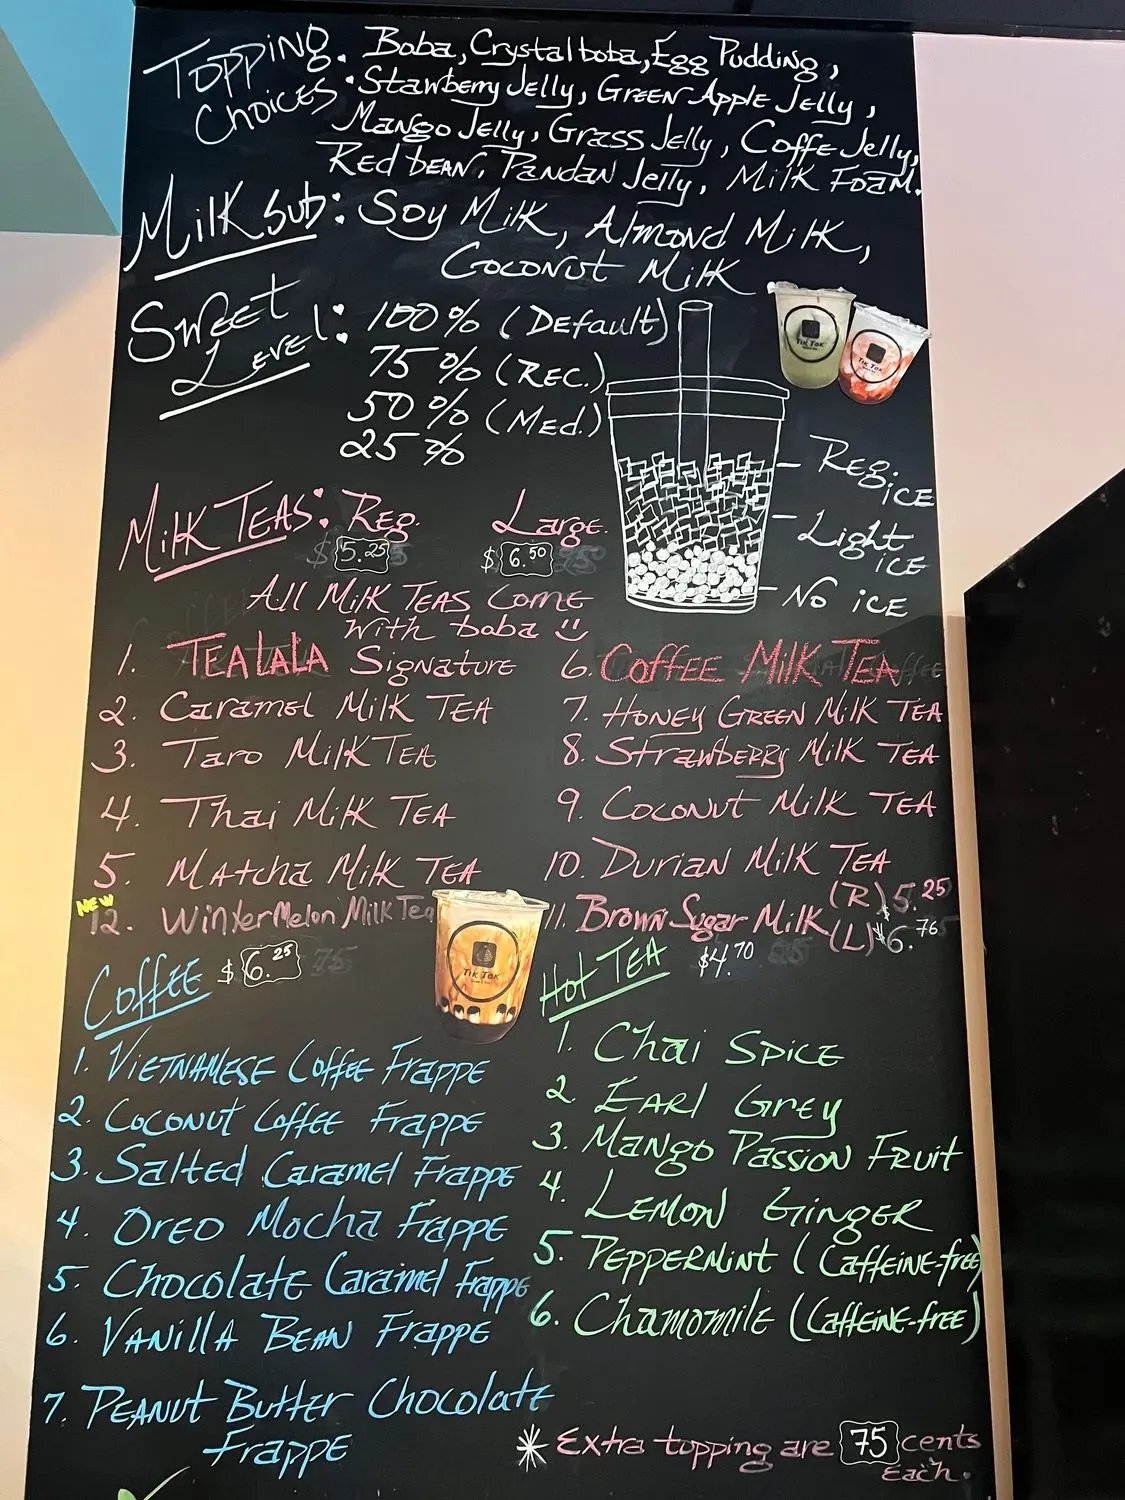 Topping Choices: Boba, Crystal boba, Egg Pudding,
Stawberry Jelly, Green Apple Jelly,
Mango Jelly, Grass Jelly, Coffe Jelly,
Red bean, Pandan Jelly, Milk Foam.
Milk sub: Soy Milk, Almond Milk,
Coconut Milk
Sweet Level: 100% (Default)
75% (Rec.)
50% (Med.)
25%
Reg. ice
Light ice
No ice
Tik Tok
Tik Tok
Milk Teas: Reg. Large
$5.25 $6.50
All Milk Teas Come
With boba
1. TEALALA Signature
2. Caramel Milk Tea
3. Taro Milk Tea
4. Thai Milk Tea
5. Matcha Milk Tea
NEW
12. Wintermelon Milk Tea
6. Coffee Milk Tea
7. Honey Green Milk Tea
8. Strawberry Milk Tea
9. Coconut Milk Tea
10. Durian Milk Tea
11. Brown Sugar Milk (R) $5.25
(L) $6.76
Tik Tok
Coffee $6.25
1. Vietnamese Coffee Frappe
2. Coconut Coffee Frappe
3. Salted Caramel Frappe
4. Oreo Mocha Frappe
5. Chocolate Caramel Frappe
6. Vanilla Bean Frappe
7. Peanut Butter Chocolate
Frappe
Hot Tea $4.70
1. Chai Spice
2. Earl Grey
3. Mango Passion Fruit
4. Lemon Ginger
5. Peppermint (Caffeine-free)
6. Chamomile (Caffeine-free)
* Extra topping are 75 cents
each.